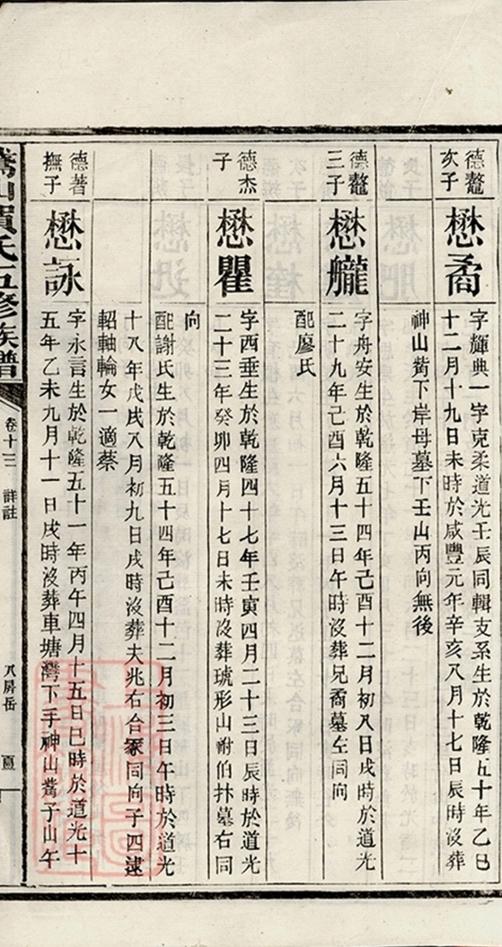 德鼇
次子
懋矞
字輝典一字克柔道光壬辰同輯支系生於乾隆五十年乙巳
十二月十九日未時於咸豐元年辛亥八月十七日辰時沒葬
神山嵩下岸母墓下壬山丙向無後
德鼇
三子
懋艬
字舟安生於乾隆五十四年己酉十二月初八日戌時於道光
二十九年己酉六月十三日午時沒葬兄矞墓左同向
配廖氏
德杰
子
懋瞿
字酉垂生於乾隆四十七年壬寅四月二十三日辰時於道光
二十三年癸卯四月十七日未時沒葬琥形山祔伯林墓右同
向
配謝氏生於乾隆五十四年己酉十二月初三日午時於道光
十八年戊戌八月初九日戌時沒葬夫兆右合冢同向子四逮
軺軸輪女一適蔡
德著
撫子
懋詠
字永言生於乾隆五十一年丙午四月十五日巳時於道光十
五年乙未九月十一日戌時沒葬車塘灣下手神山嵩子山午
氏五修族譜
卷十三
詳註
八房岳